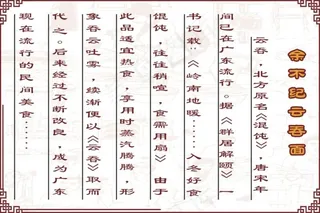 余不纪云吞面
云吞，北方原名《混沌》，唐宋年
间已在广东流行。据《群居解颐》一
书记载《岭南地暖……入冬好食
馄饨，往往稍喧，食需用扇》由于
此品适宜热食，享用时蒸汽腾腾，形
象吞云吐雾，续渐便以《云吞》取而
代之。后来经过不断改良，成为广东
现在流行的民间美食……